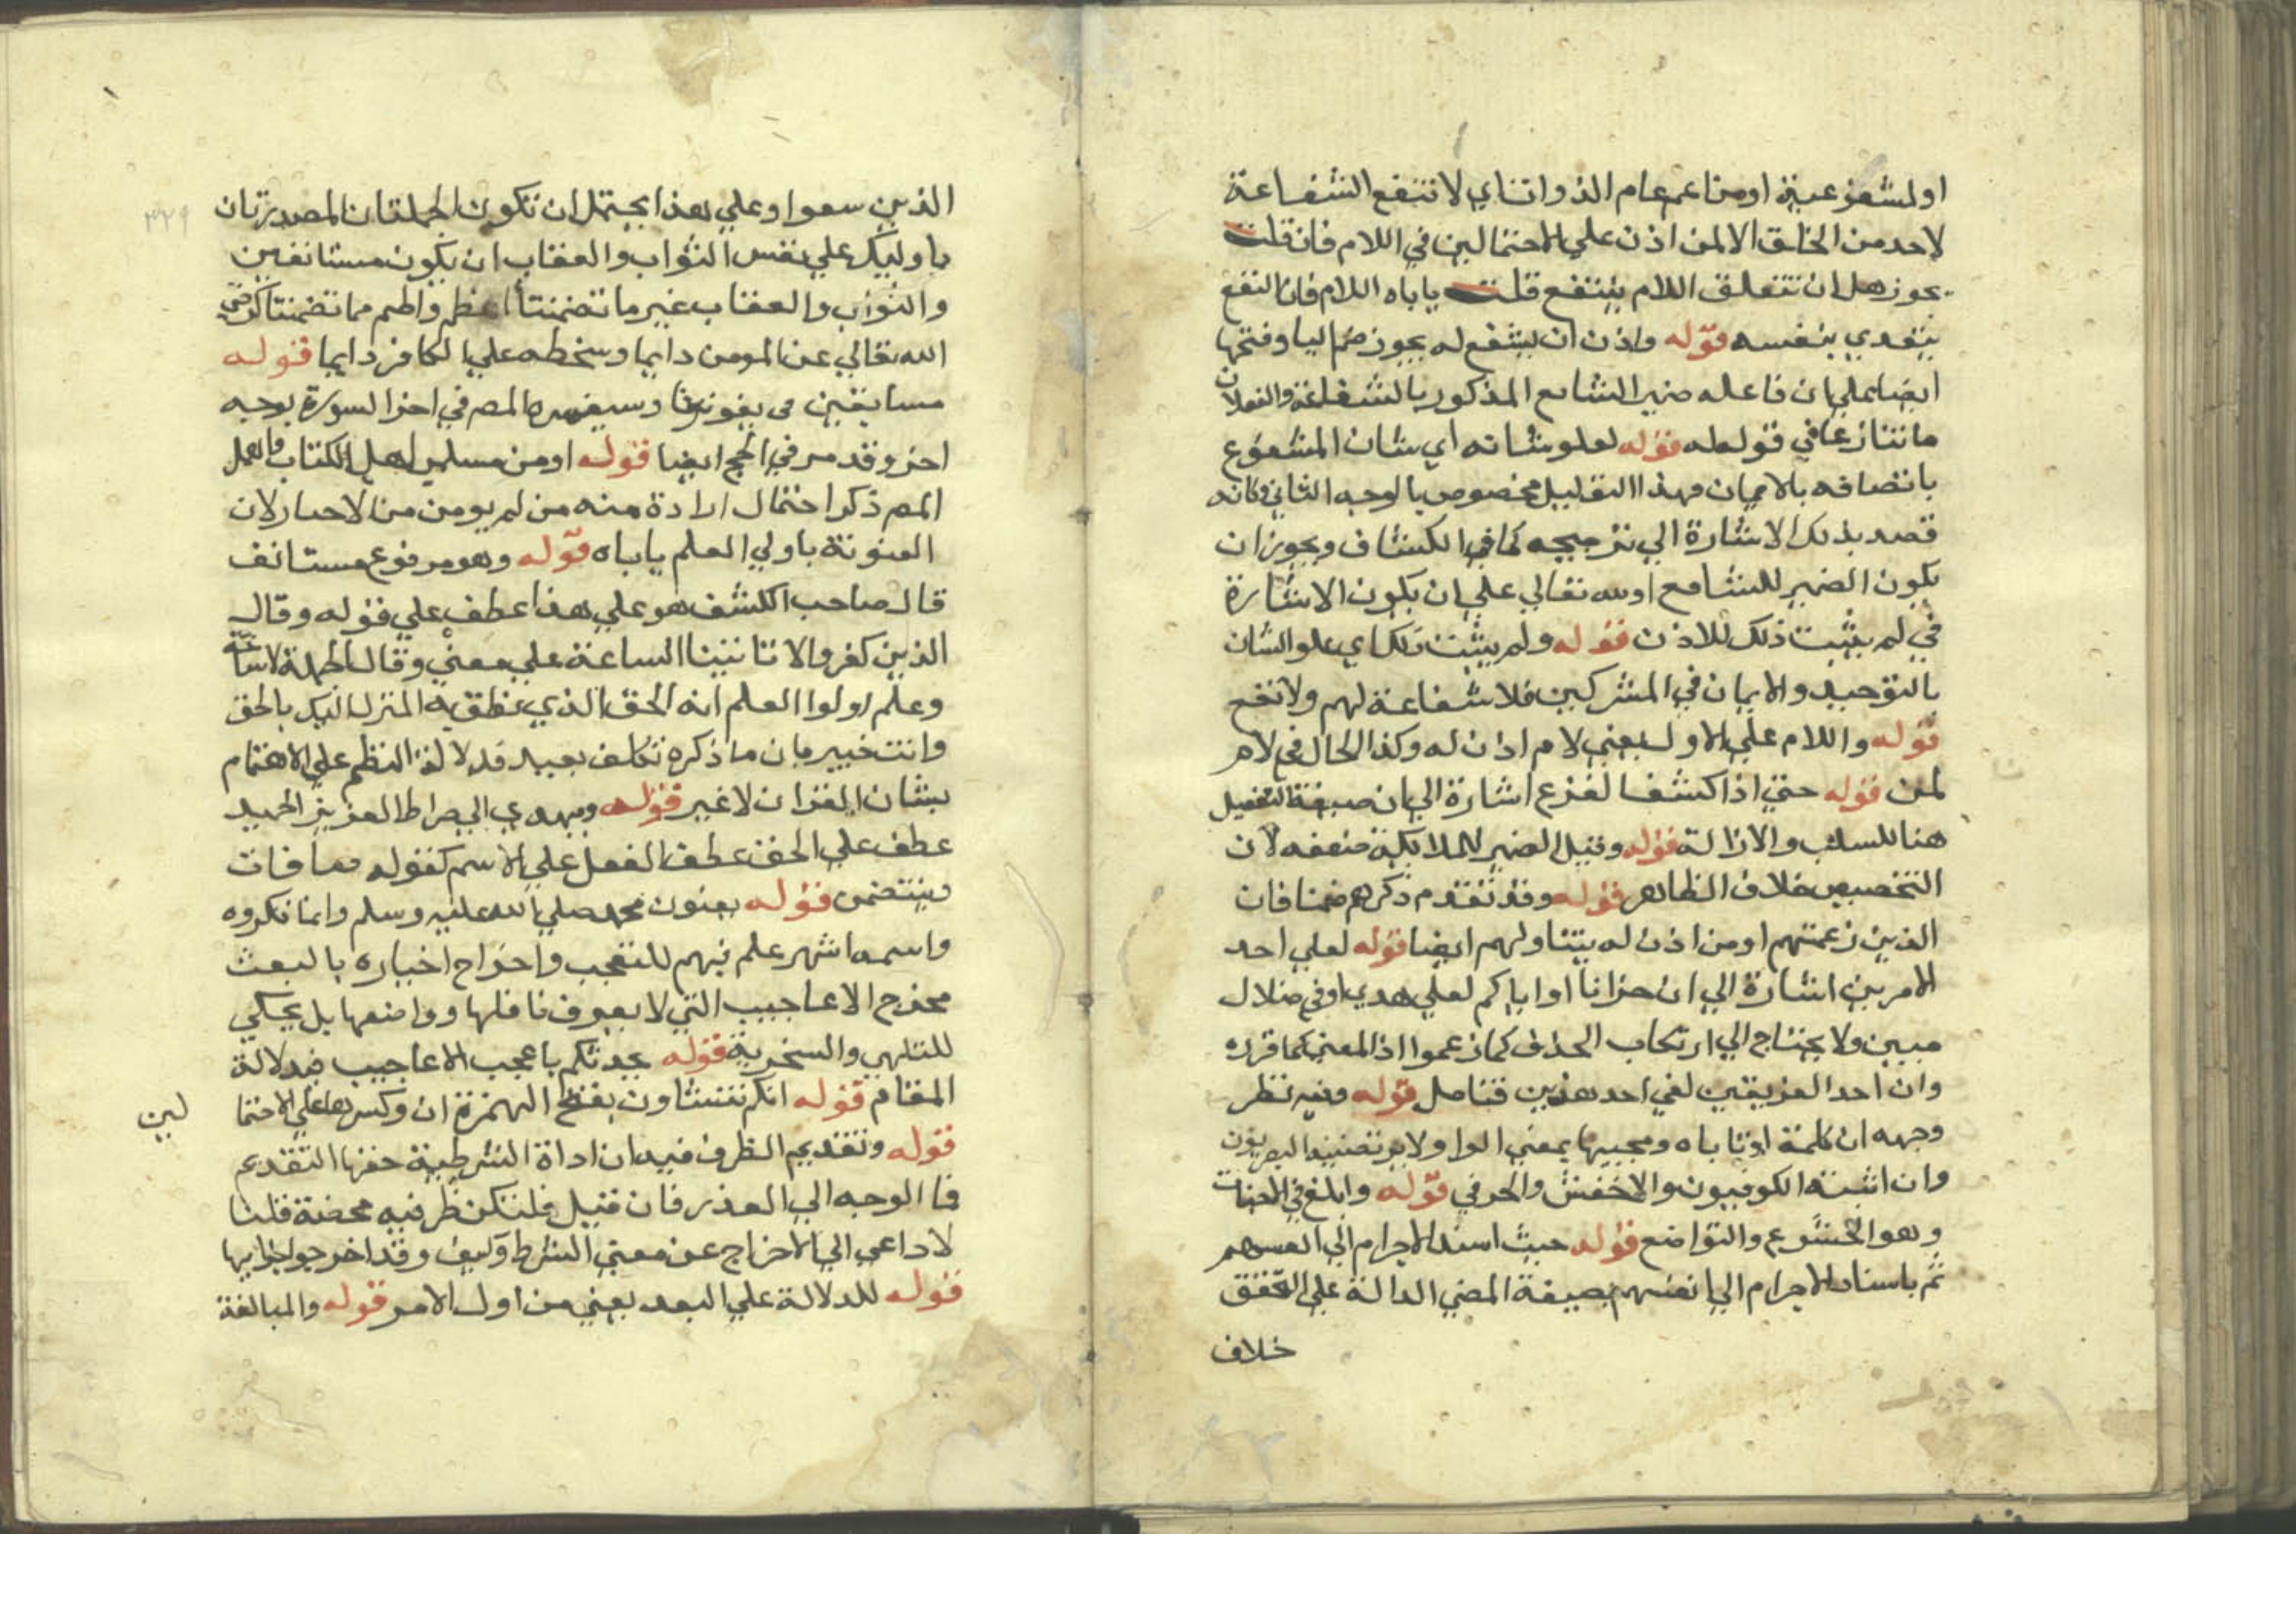 او لمشفوع عينه او من اعم عام الذوات اي لا تنفع الشفاعة
لاحد من الخلق الا لمن اذن علي الاحتمالين في اللام فان قلت
يجوز هل ان تتعلق اللام بينتفع قلت ياباه اللام فان النفع
يتعدي بنفسه قوله واذن ان يشفع له يجوز ضم اليا وفتحها
ايضا علي ان فاعله ضمير الشافع المذكور بالشفاعة والفعلان
ما تنازعا في قوله له قوله لعلو شانه اي شان المشفوع
باتصافه بالايمان وهذا التعليل مخصوص بالوجه الثاني وكانه
قصد بذلك الاشارة الي ترجيحه كما في الكشاف ويجوز ان
يكون الضمير للشافع او لله تعالي علي ان يكون الاشارة
في لم يثبت ذلك للاذن قوله ولم يثبت ذلك اي علو الشان
بالتوحيد والايمان في المشركين فلا شفاعة لهم ولا نفع
قوله واللام علي الاول يعني لام اذن له وكذا الحال في لام
لمن قوله حتي اذا كشف الفزع اشارة الي ان صيغة التفعيل
هنا للسلب والازالة قوله وقيل الضمير للملائكة ضعفه لان
التخصيص خلاف الظاهر قوله وقد تقدم ذكرهم ضمنا فان
الذين زعمتم او من اذن له يتناولهم ايضا قوله لعلي احد
الامرين اشارة الي ان خبر انا او اياكم لعلي هدي او في ضلال
مبين ولا يحتاج الي ارتكاب الحذف كما زعموا اذ المعني كما قرره
وان احد الفريقين لفي احد هذين فتامل قوله وفيه نظر
وجهه ان كلمة او تاباه ومجيبها بمعني الواو لا يرتضيه البصريون
وان اثبته الكوفيون والاخفش والجرمي قوله وابلغ في الاخبات
وهو الخشوع والتواضع قوله حيث اسند الاجرام الي انفسهم
ثم باسناد الاجرام الي انفسهم بصيغة المضي الدالة علي التحقق
خلاف
الذين سعوا وعلي هذا يحتمل ان تكون الجملتان المصدرتان
باوليك علي نفس الثواب والعقاب ان يكون مستانفين
والثواب والعقاب غير ما تضمنتا اعظم واطم مما تضمنتا كرضي
الله تعالي عن المومن دايما وسخطه علي الكافر دايما قوله
مسابقين كي يفوتونا وسيفسره المصر في اخر السورة بوجه
اخر وقد مر في الحج ايضا قوله او من مسلمي اهل الكتاب واهمل
المصر ذكر احتمال ارادة منه من لم يومن من الاحبار لان
العنونة باولي العلم ياباه قوله وهو مرفوع مستانف
قال صاحب الكشف هو علي هذا عطف علي قوله وقال
الذين كفروا لا تاتينا الساعة علي معني وقال الجهلة لا ساعة
وعلم اولوا العلم انه الحق الذي نطق به المنزل اليك بالحق
وانت خبير بان ما ذكره تكلف بعيد فدلالة النظم علي الاهتمام
بشان القران لا غير قوله ويهدي الي صراط العزيز الحميد
عطف علي الحق عطف الفعل علي الاسم كقوله صافات
ويقبضن قوله يعنون محمد صلي الله عليه وسلم وانما نكروه
واسمه اشهر علم فيهم للتعجب واخراج اخباره بالبعث
مخرج الاعاجيب التي لا يعرف ناقلها وواضعها بل يحكي
للتلهي والسخرية قوله يحدثكم باعجب الاعاجيب فدلالة
المقام قوله انكم تنشاون بفتح الهمزة ان وكسرها علي الاحتما
لين
قوله وتقديم الظرف فيه ان اداة الشرطية حقها التقديم
فما الوجه الي العذر فان قيل فلتكن ظرفيه محضة قلنا
لا داعي الي الاخراج عن معني الشرط وكيف وقد اخرجوا جوابها
قوله للدلالة علي البعد يعني من اول الامر قوله والمبالغة